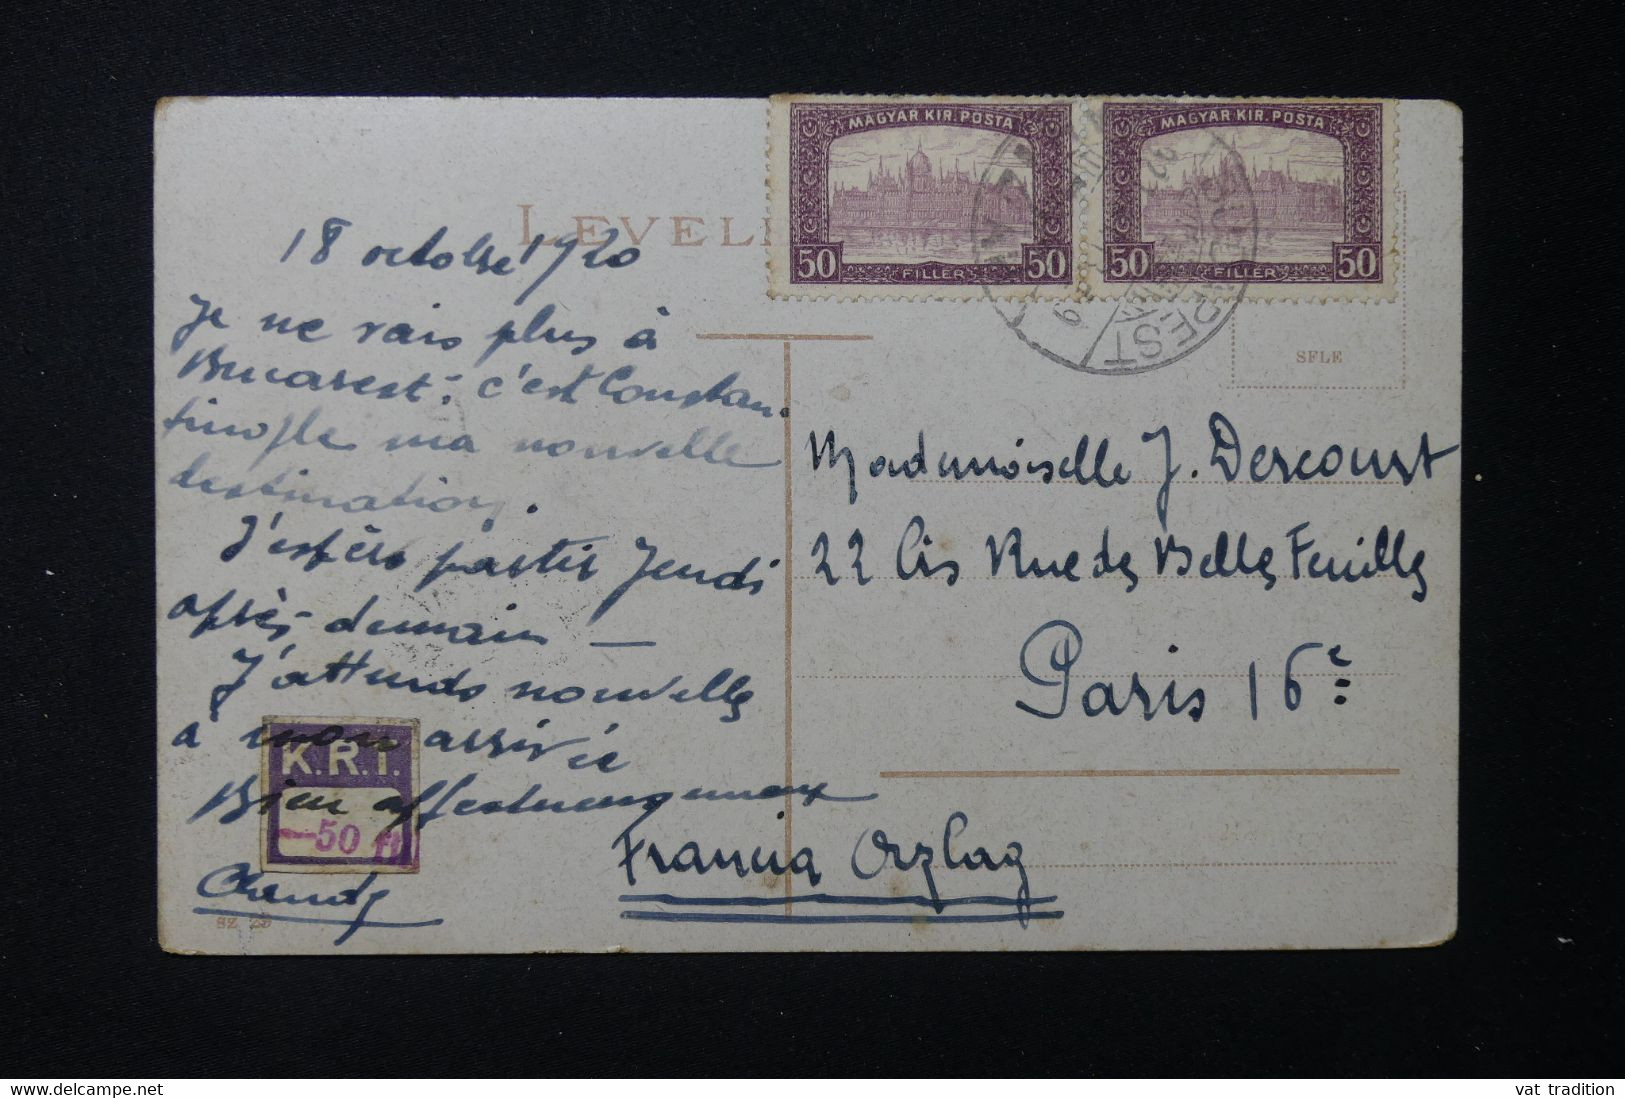 MAGYAR KIR. POSTA
50 FILLER 50
MAGYAR KIR. POSTA
50 FILLER 50
LEVEL
SFLE
18 octobre 1920
Je ne vais plus à
Bucarest : c'est Constan-
tinople ma nouvelle
destination.
J'espère partir Jeudi
après-demain —
J'attends nouvelles
à mon arrivée
Bien affectueusement
K.R.I.
50 fl
Mademoiselle J. Descourt
22 bis Rue des Belles Feuilles
Paris 16e
Francia Orzlag
vat tradition
www.delcampe.net